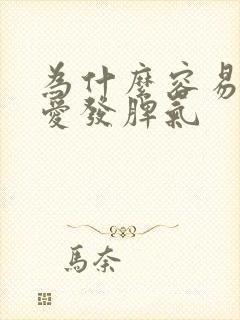 為什麼容易
愛發脾氣
馬奈